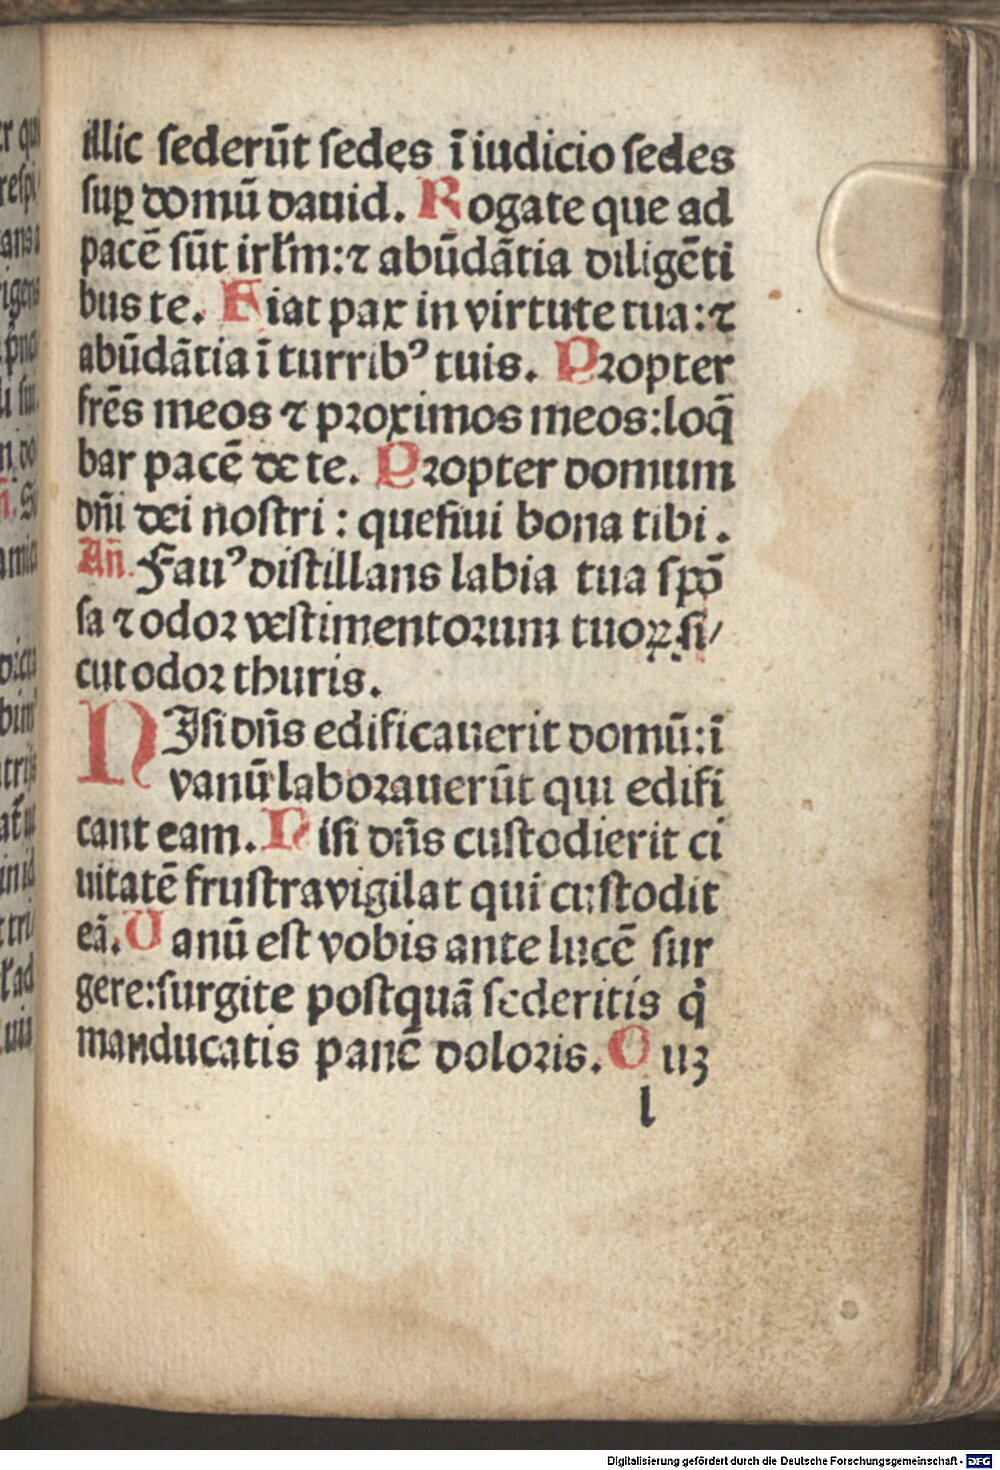 illic sederūt sedes ī iudicio sedes
suꝑ domū dauid. Rogate que ad
pacē sūt irl̄m: ⁊ abūdātia diligēti
bus te. Fiat pax in virtute tua: ⁊
abūdātia ī turribꝰ tuis. Propter
frēs meos ⁊ proximos meos: loq̄
bar pacē de te. Propter domum
dn̄i dei nostri : quesiui bona tibi.
An̄. Fauꝰ distillans labia tua spō
sa ⁊ odor vestimentorum tuoꝝ si/
cut odor thuris.
NIsi dn̄s edificauerit domū: ī
vanū laborauerūt qui edifi
cant eam. Nisi dn̄s custodierit ci
uitatē frustra vigilat qui custodit
eā. Uanū est vobis ante lucē sur
gere: surgite postquā sederitis q̇
manducatis panē doloris. Cuꝫ
l
er qu
Digitalisierung gefördert durch die Deutsche Forschungsgemeinschaft - DFG